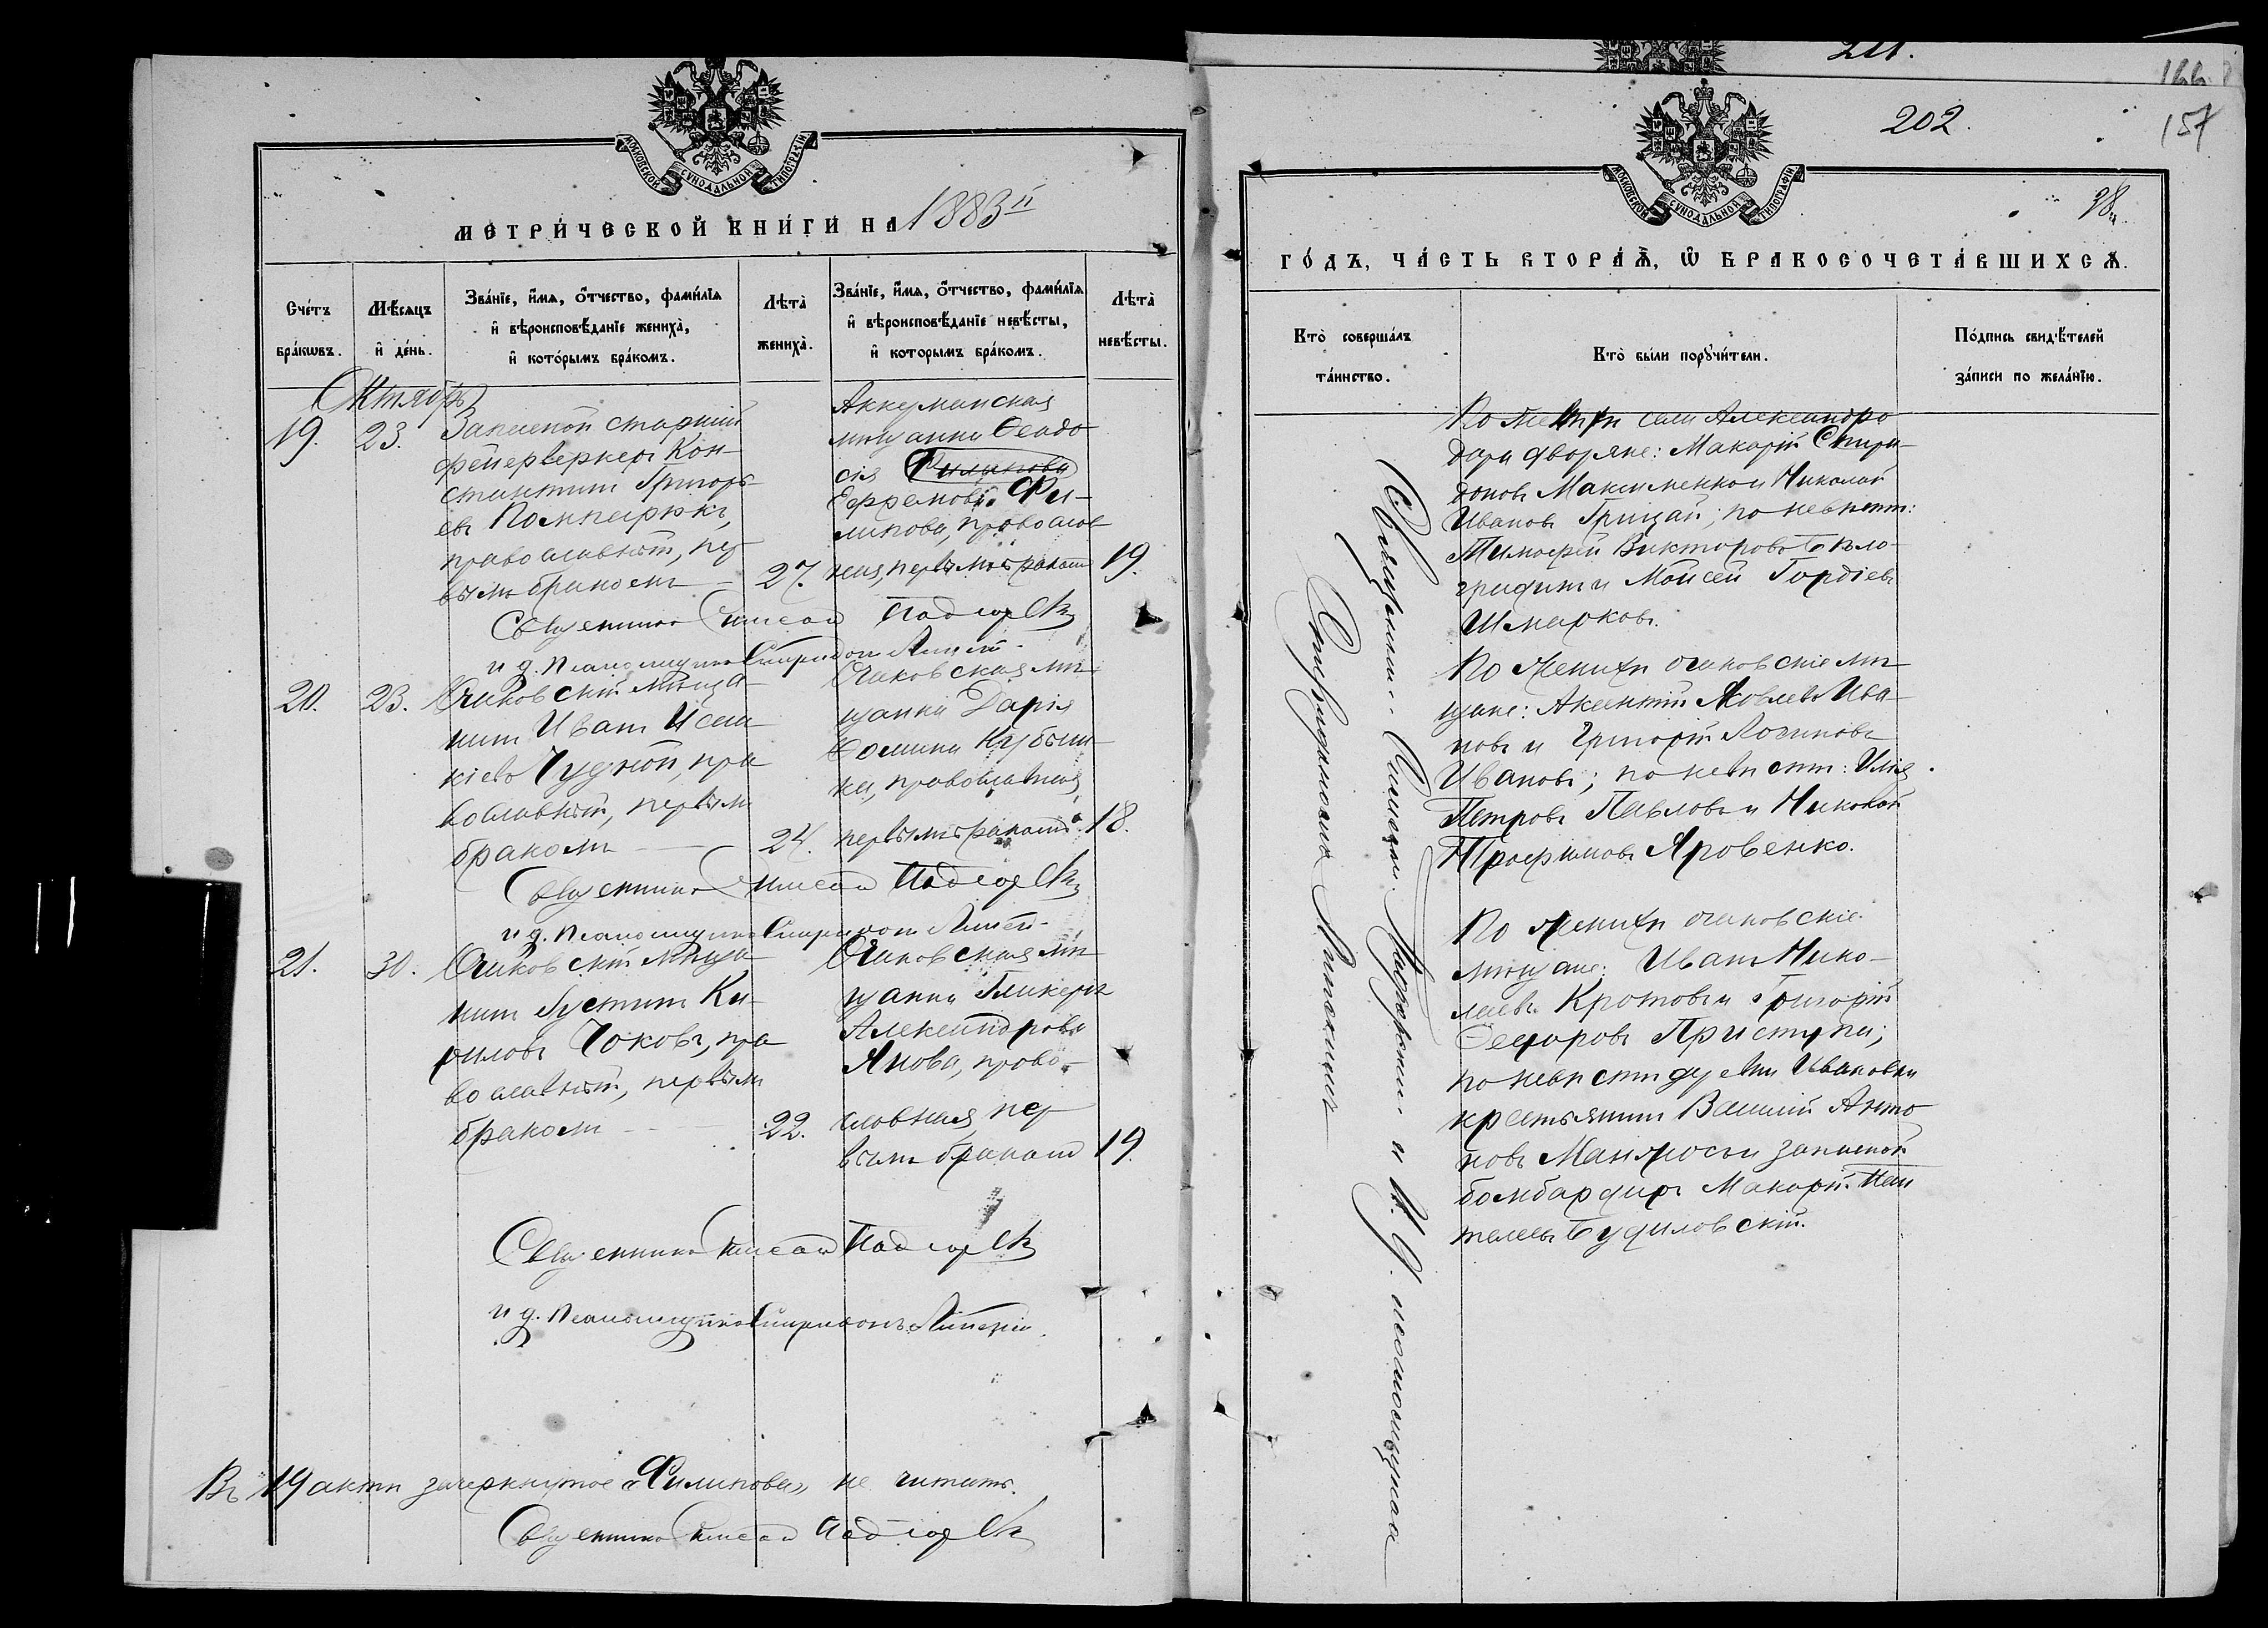 МОСКОВСКОЙ СУНОДАЛЬНОЙ ТИПОГРАФІИ
МЕТРИ́ЧЕСКОЙ КНИ́ГИ НА 1883й
Сче́тъ бра́кѡвъ.
Мѣ́сяцъ и де́нь.
Зва́ніе, и́мя, о́тчество, фами́лія
и вѣроисповѣ́даніе жениха̀,
и кото́рымъ бра́комъ.
Лѣта̀ жениха̀.
Зва́ніе, и́мя, о́тчество, фами́лія
и вѣроисповѣ́даніе невѣ́сты,
и которымъ бра́комъ.
Лѣта̀ невѣ́сты.
Октябрь
19. 23.
Запасной старшій
фейерверкеръ Кон-
стантинъ Григорь-
евъ
православный, пер-
вымъ бракомъ 27.
Аккерманская
мѣщанка Ѳеодо-
сія Филипова
Ефремова Фи-
липова, православ-
ная, первымъ бракомъ 19.
Священникъ Симеонъ
и д. псаломщика Спиридонъ
20. 23.
Очаковскій мѣща-
нинъ Иванъ Исаа-
кіевъ Чудной, пра-
вославный, первымъ
бракомъ 24.
Очаковская мѣ-
щанка Дарія
Ѳомина
православная,
первымъ бракомъ 18.
Священникъ Симеонъ
и д. псаломщика Спиридонъ
21. 30.
Очаковскій мѣща-
нинъ Густинъ Ки-
риловъ Чоковъ, пра-
вославный, первымъ
бракомъ 22.
Очаковская мѣ-
щанка Гликерія
Александрова
Янова, право-
славная, пер-
вымъ бракомъ 19.
Священникъ Симеонъ
и д. псаломщика Спиридонъ
Въ 19 актѣ зачеркнутое «Филипова» не читать.
Священникъ Симеонъ
202.
157
МОСКОВСКОЙ СУНОДАЛЬНОЙ ТИПОГРАФІИ
ГО́ДЪ, ЧА́СТЬ ВТОРА́Я, Ѡ БРАКОСОЧЕТА́ВШИХСЯ.
Кто̀ соверша́лъ та́инство.
Кто̀ бы́ли поручи́тели.
По́дпись свидѣ́телей
за́писи по жела́нію.
Священникъ Симеонъ и И. Д. псаломщика
По женихѣ села Александро-
дара дворяне: Макарій Спири-
доновъ Максименко и Николай
Ивановъ Грицай; по невѣстѣ:
Тимофей Викторовъ Бѣло-
градинъ и Моисей Гордіевъ
Шмарковъ.
По женихѣ очаковскіе мѣ-
щане: Аксентій Яковлевъ Ива-
новъ и Григорій Логиновъ
Ивановъ; по невѣстѣ: Илія
Петровъ Павловъ и Николай
Трофимовъ Яровенко.
По женихѣ очаковскіе
мѣщане: Иванъ Нико-
лаевъ Кротовъ и Григорій
Ѳедоровъ Приступа;
по невѣстѣ дер. Ивановки
крестьянинъ Василій Анто-
новъ и запасной
бомбардиръ Макарій Пан-
телеевъ Будиловскій.